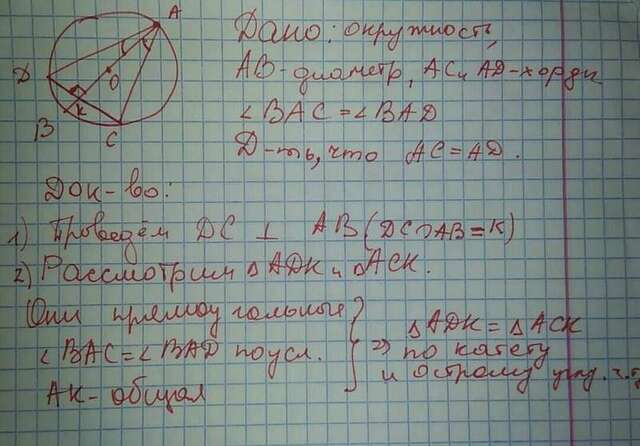 A
D
O
K
B
C
Дано: окружность,
AB-диаметр, AC и AD-хорды
∠BAC=∠BAD
Д-ть, что AC=AD.
Док-во:
1) Проведём DC ⊥ AB (DC∩AB=K)
2) Рассмотрим △ADK и △ACK.
Они прямоугольные
∠BAC=∠BAD по усл.
AK-общая
⇒ △ADK=△ACK
по катету
и острому углу. ч.т.д